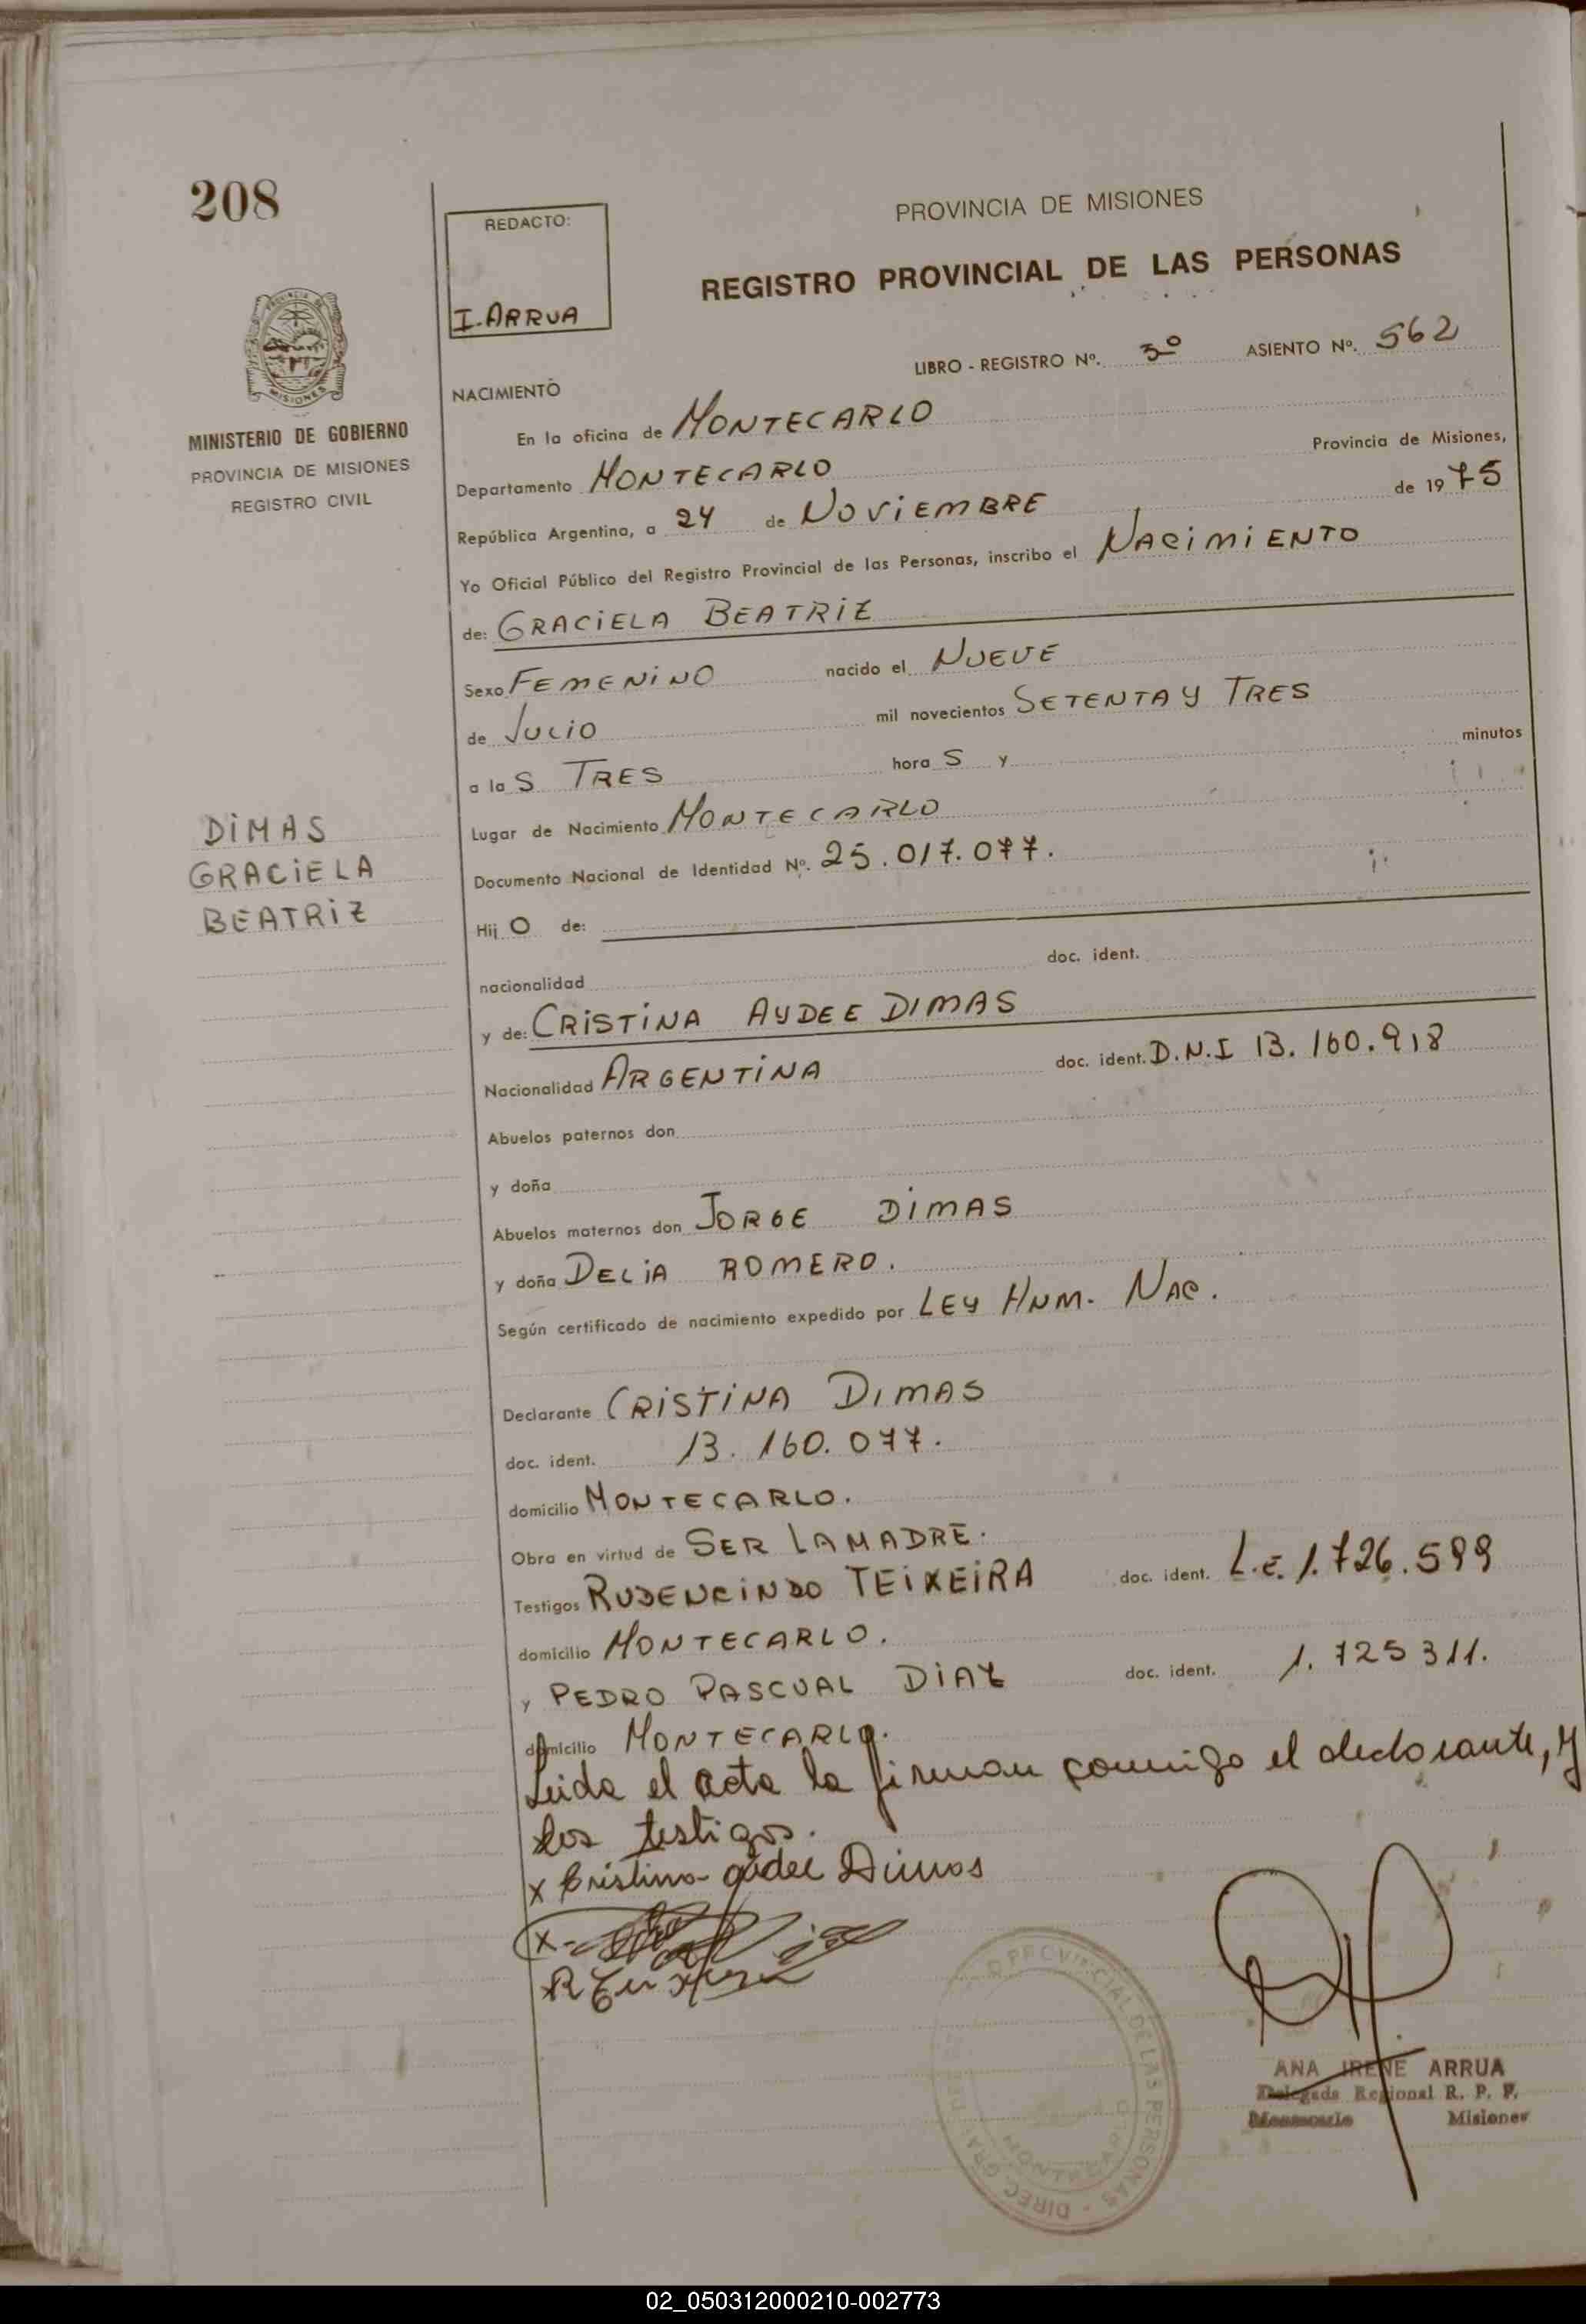 208
REDACTO:
I. ARRUA
PROVINCIA DE MISIONES
REGISTRO PROVINCIAL DE LAS PERSONAS
LIBRO - REGISTRO Nº. 3º ASIENTO Nº. 562
MINISTERIO DE GOBIERNO
PROVINCIA DE MISIONES
REGISTRO CIVIL
NACIMIENTO
En la oficina de MONTECARLO
Departamento MONTECARLO Provincia de Misiones,
República Argentina, a 24 de NOVIEMBRE de 1975
Yo Oficial Público del Registro Provincial de las Personas, inscribo el NACIMIENTO
de: GRACIELA BEATRIZ
Sexo FEMENINO nacido el NUEVE
de JULIO mil novecientos SETENTA Y TRES
a las TRES horas y minutos
Lugar de Nacimiento MONTECARLO
Documento Nacional de Identidad Nº. 25.017.077.
DIMAS
GRACIELA
BEATRIZ
Hijo de:
nacionalidad doc. ident.
y de: CRISTINA AYDEE DIMAS
Nacionalidad ARGENTINA doc. ident. D.N.I 13.160.918
Abuelos paternos don
y doña
Abuelos maternos don JORGE DIMAS
y doña DELIA ROMERO.
Según certificado de nacimiento expedido por LEY NAC.
Declarante CRISTINA DIMAS
doc. ident. 13.160.077.
domicilio MONTECARLO.
Obra en virtud de SER LA MADRE.
Testigos RUDENCINDO TEIXEIRA doc. ident. L.E. 1.726.599
domicilio MONTECARLO.
y PEDRO PASCUAL DIAZ doc. ident. 1.725311.
domicilio MONTECARLO.
Leida el acta la firman conmigo el declarante, y
los testigos.
x Cristina Dimas
x
ANA IRENE ARRUA
Delegada Regional R. P. P.
Montecarlo Misiones
PROVINCIAL DE LAS PERSONAS - DIREC. GRAL.
MONTECARLO
02_050312000210-002773